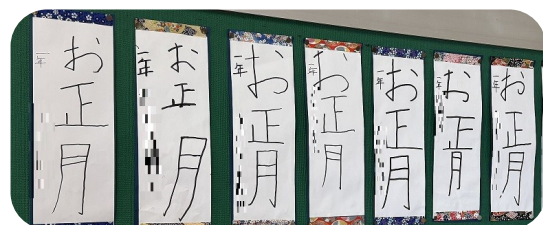 お正月
一年
お正月
一年
お正月
一年
お正月
一年
お正月
一年
お正月
一年
お正月
一年